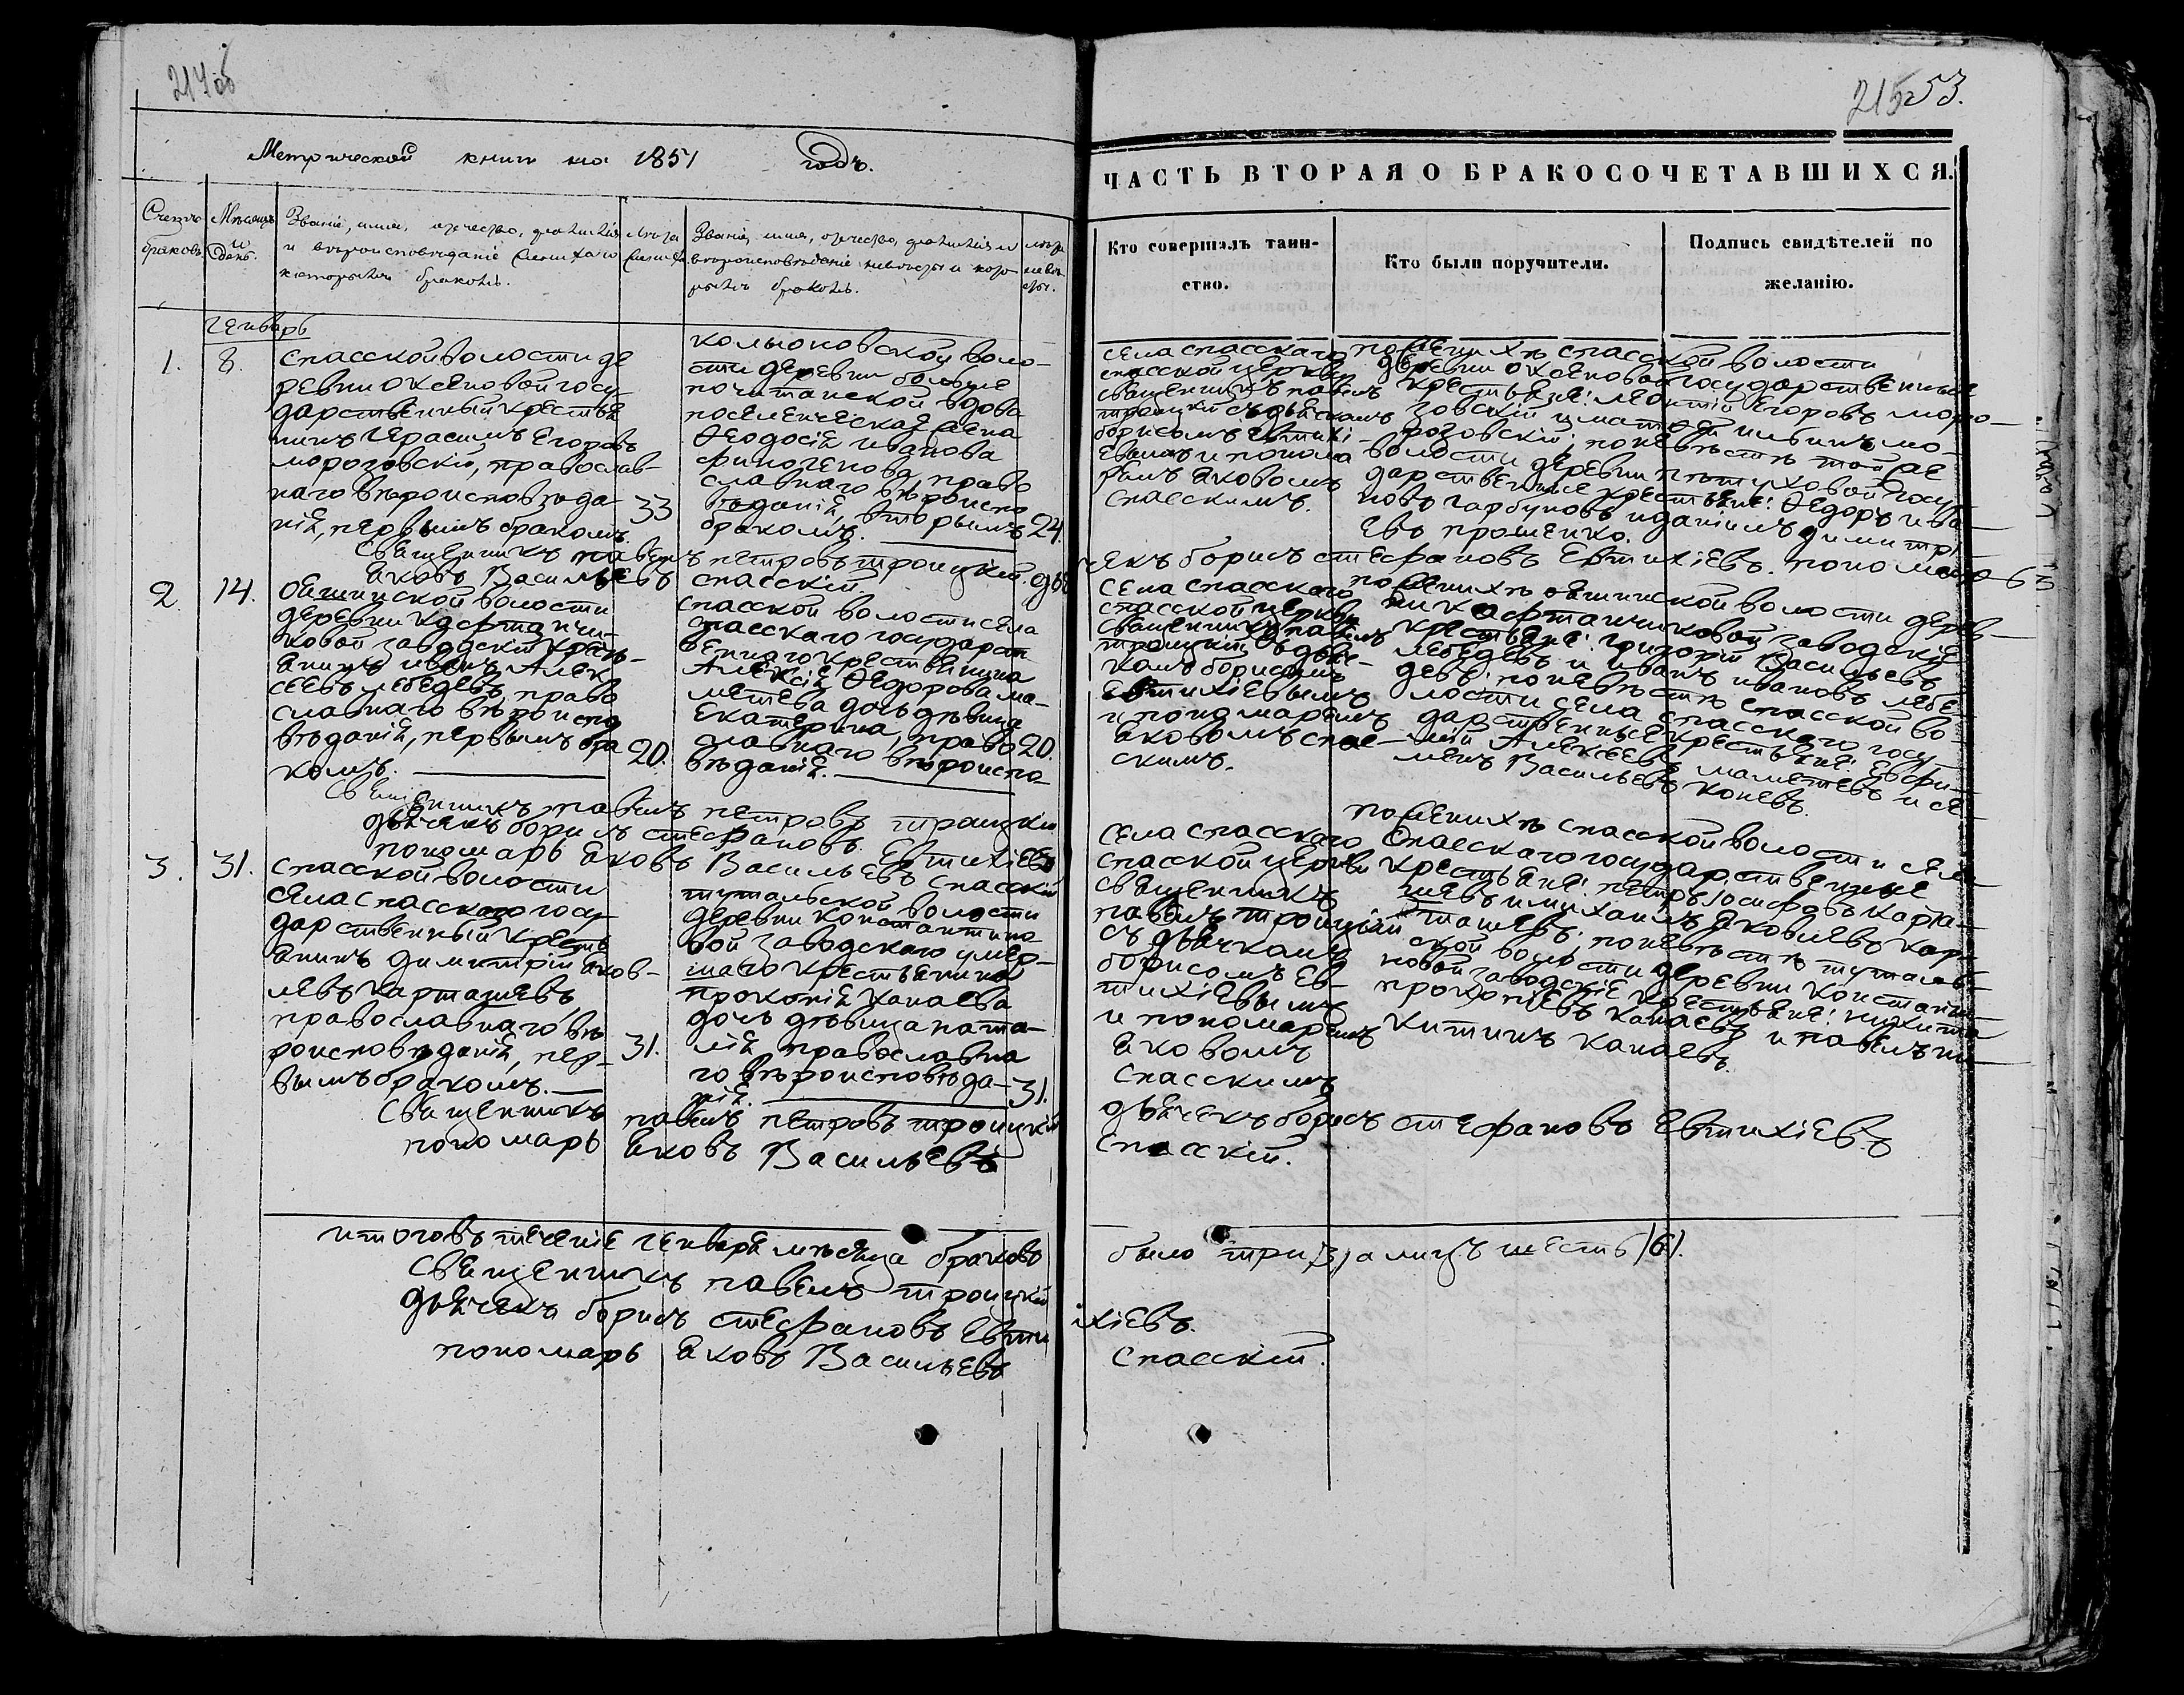 214об
Метрической книги на 1851 годъ.
Счетъ браковъ.
Мѣсяцъ и день.
Званіе, имя, отчество, фамилія
и вѣроисповѣданіе жениха и
которымъ бракомъ.
лѣта жениха
Званіе, имя, отчество, фамилія и
вѣроисповѣданіе невѣсты и кото-
рымъ бракомъ.
лѣта невѣсты.
генварь
1. 8.
Спасской волости де
ревни Оксеновой госу
дарственный крестья
нинъ Герасимъ Егоровъ
Морозовскій, православ-
наго вѣроисповѣда-
нія, первымъ бракомъ.
33
колыоновской воло-
сти деревни больше
почитанской вдова
поселенческая жена
Ѳеодосія Иванова
Финогенова, право
славнаго вѣроиспо
вѣданія, вторымъ
бракомъ.
24.
Священникъ Павелъ Петровъ Троицкій. дья
Яковъ Васильевъ Спасскій
2. 14.
Ояшинской волости
деревни Кафтанчи-
ковой заводскій крест-
янинъ Иванъ Алек
сеевъ Лебедевъ, право
славнаго вѣроиспо
вѣданія, первымъ бра
комъ.
20.
Спасской волости села
Спасскаго государст
веннаго крестьянина
Алексія Ѳедорова Ма-
метева дочь дѣвица
Екатерина, право
славнаго вѣроиспо-
вѣданія.
20.
Священникъ Павелъ Петровъ Троицкій
дьячекъ Борисъ Стефановъ Евтихіевъ
пономарь Яковъ Васильевъ Спасскій
3. 31.
Спасской волости
села Спасскаго госу
дарственный кресть
янинъ Димитрій Яков-
левъ Карташевъ,
православнаго вѣ
роисповѣданія, пер-
вымъ бракомъ.
31.
тутальской волости
деревни Константино
вой заводскаго умер-
шаго крестьянина
Прокопія Канаева
дочь дѣвица Ната-
лія, православна
го вѣроисповѣда-
нія.
31.
Священникъ Павелъ Петровъ Троицкій
пономарь Яковъ Васильевъ
итого въ теченіе генваря мѣсяца браковъ
Священникъ Павелъ Троицкій
дьячекъ Борисъ Стефановъ Евти
пономарь Яковъ Васильевъ
215 53.
ЧАСТЬ ВТОРАЯ О БРАКОСОЧЕТАВШИХСЯ.
Кто совершалъ таин-
ство.
Кто были поручители.
Подпись свидѣтелей по
желанію.
села Спасскаго
Спасской церкви
священникъ Павелъ
Троицкій съ дьячкомъ
Борисомъ Евтихі-
евымъ и понома
ремъ Яковомъ
Спасскимъ.
по женихѣ Спасской волости
деревни Оксеновой государственные
крестьяне: Леонтій Егоровъ Моро-
зовскій и Матѳей Ильинъ Мо-
розовскій; по невѣстѣ той же
волости деревни Пѣтуховой госу
дарственные крестьяне: Ѳедоръ Ива
новъ Гарбуновъ и Даніилъ Димитрі
евъ Прошенко.
чекъ Борисъ Стефановъ Евтихіевъ. пономарь
села Спасскаго
Спасской церкви
священникъ Павелъ
Троицкій съ дьяч-
комъ Борисомъ
Евтихіевымъ
и пономаремъ
Яковомъ Спас-
скимъ.
по женихѣ Ояшинской волости дерев-
ни Кафтанчиковой заводскіе
крестьяне: Григорій Васильевъ
Лебедевъ и Иванъ Ивановъ Лебе
девъ; по невѣстѣ Спасской во-
лости села Спасскаго госу
дарственные крестьяне: Евфи-
мій Алексеевъ Маметевъ и Се-
менъ Васильевъ Коневъ.
села Спасскаго
Спасской церкви
священникъ
Павелъ Троицкій
съ дьячкомъ
Борисомъ Ев-
тихіевымъ
и пономаремъ
Яковомъ
Спасскимъ
по женихѣ Спасской волости села
Спасскаго государственные
крестьяне: Петръ Іосифовъ Карта-
шевъ и Михаилъ Яковлевъ Кар-
ташевъ; по невѣстѣ туталь-
ской волости деревни Константи-
новой заводскіе крестьяне: Никита
Прокопіевъ Канаевъ и Павелъ Ни-
китинъ Канаевъ.
дьячекъ Борисъ Стефановъ Евтихіевъ
Спасскій.
было три /3/ а лицъ шесть /6/.
ихіевъ.
Спасскій.